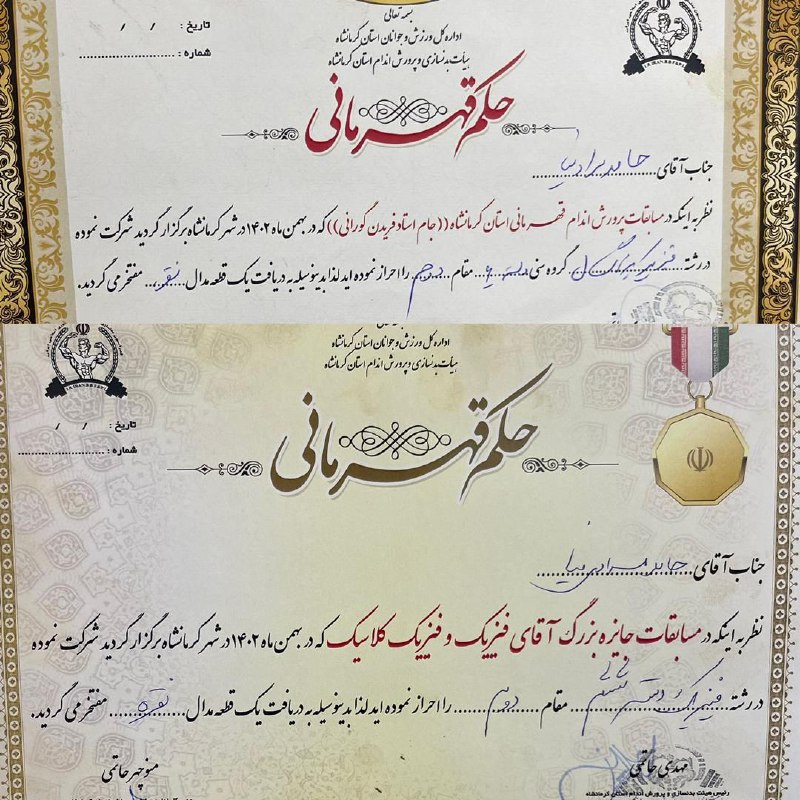 بسمه تعالی
اداره کل ورزش و جوانان استان کرمانشاه
هیأت بدنسازی و پرورش اندام استان کرمانشاه
تاریخ : / /
شماره :
حکم قهرمانی
جناب آقای حامد مرادی
نظر به اینکه در مسابقات پرورش اندام قهرمانی استان کرمانشاه ((جام استاد فریدن گورانی)) که در بهمن ماه ۱۴۰۲ در شهر کرمانشاه برگزار گردید شرکت نموده
در رشته فیزیک گروه سنی مقام دوم را احراز نموده اید لذا بدینوسیله به دریافت یک قطعه مدال نقره مفتخر می گردید.
اداره کل ورزش و جوانان استان کرمانشاه
هیأت بدنسازی و پرورش اندام استان کرمانشاه
تاریخ : / /
شماره :
حکم قهرمانی
جناب آقای حامد مرادی
نظر به اینکه در مسابقات جایزه بزرگ آقای فیزیک و فیزیک کلاسیک که در بهمن ماه ۱۴۰۲ در شهر کرمانشاه برگزار گردید شرکت نموده
در رشته فیزیک مقام دوم را احراز نموده اید لذا بدینوسیله به دریافت یک قطعه مدال نقره مفتخر می گردید.
مهدی حاتمی
رئیس هیئت بدنسازی و پرورش اندام استان کرمانشاه
منوچهر حاتمی